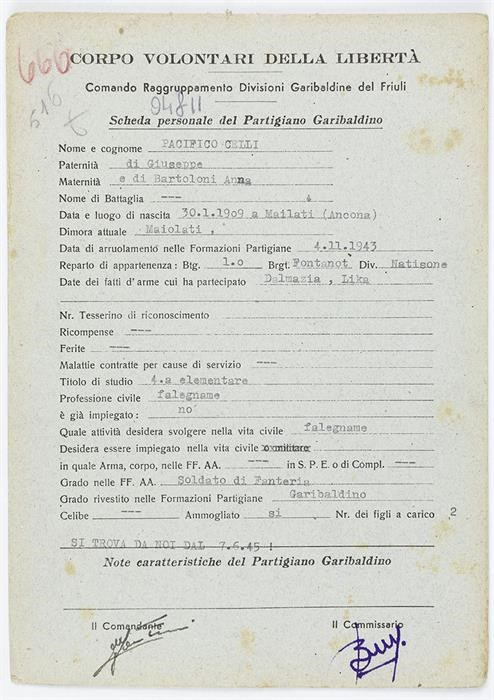 666
CORPO VOLONTARI DELLA LIBERTÀ
516
Comando Raggruppamento Divisioni Garibaldine del Friuli
04811
Scheda personale del Partigiano Garibaldino
Nome e cognome PACIFICO CELLI
Paternità di Giuseppe
Maternità e di Bartoloni Anna
Nome di Battaglia ---
Data e luogo di nascita 30.1.1909 a Mailati (Ancona)
Dimora attuale Maiolati ,
Data di arruolamento nelle Formazioni Partigiane 4.11.1943
Reparto di appartenenza: Btg. 1.o Brgt. Fontanot Div. Natisone
Date dei fatti d'arme cui ha partecipato Dalmazia , Lika
Nr. Tesserino di riconoscimento
Ricompense ---
Ferite ---
Malattie contratte per cause di servizio ---
Titolo di studio 4.a elementare
Professione civile falegname
è già impiegato: no
Quale attività desidera svolgere nella vita civile falegname
Desidera essere impiegato nella vita civile o militare
in quale Arma, corpo, nelle FF. AA. --- in S. P. E. o di Compl. ---
Grado nelle FF. AA. Soldato di Fanteria
Grado rivestito nelle Formazioni Partigiane Garibaldino
Celibe --- Ammogliato si Nr. dei figli a carico 2
SI TROVA DA NOI DAL 7.6.45 !
Note caratteristiche del Partigiano Garibaldino
Il Comandante Il Commissario